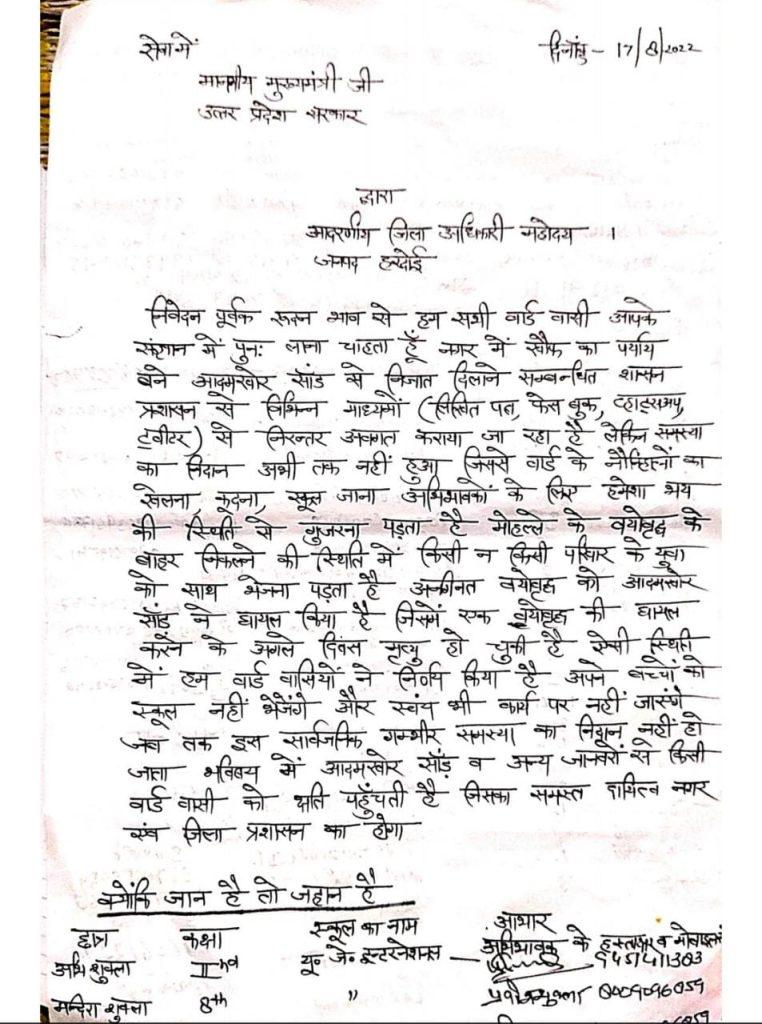 सेवा में
दिनाँक - 17/8/2022
माननीय मुख्यमंत्री जी
उत्तर प्रदेश सरकार
द्वारा
आदरणीय जिला अधिकारी महोदय ।
जनपद हरदोई
निवेदन पूर्वक रूदन भाव से हम सभी वार्ड वासी आपके
संज्ञान में पुनः लाना चाहता हूँ नगर में खौफ का पर्याय
बने आदमखोर सॉड से निजात दिलाने सम्बन्धित शासन
प्रशासन से विभिन्न माध्यमों (लिखित पत्र, फेस बुक, व्हाट्सअप,
ट्वीटर) से निरन्तर अवगत कराया जा रहा है लेकिन समस्या
का निदान अभी तक नहीं हुआ जिससे वार्ड के नौनिहालों का
खेलना, कूदना, स्कूल जाना अभिभावकों के लिए हमेशा भय
की स्थिति से गुजरना पड़ता है मोहल्ले के वयोवृद्ध के
बाहर निकलने की स्थिति में किसी न किसी परिवार के युवा
को साथ भेजना पड़ता है अनगिनत वयोवृद्ध को आदमखोर
सॉड ने घायल किया है जिसमें एक वयोवृद्ध की घायल
करने के अगले दिवस मृत्यु हो चुकी है ऐसी स्थिति
में हम वार्ड वासियों ने निर्णय किया है अपने बच्चों को
स्कूल नहीं भेजेंगे और स्वंय भी कार्य पर नहीं जाएंगे
जब तक इस सार्वजनिक गम्भीर समस्या का निदान नहीं हो
जाता भविष्य में आदमखोर सॉड़ व अन्य जानवरों से किसी
वार्ड वासी को क्षति पहुँचती है जिसका समस्त दायित्व नगर
एंव जिला प्रशासन का होगा
क्योंकि जान है तो जहान है
छात्र कक्षा स्कूल का नाम आभार
अभिभावक के हस्ताक्षर व मोबाइल नं
शुक्ला यू० जे० इन्टरनेशनल — 9451411303
शुक्ला 8th ” 6009096059